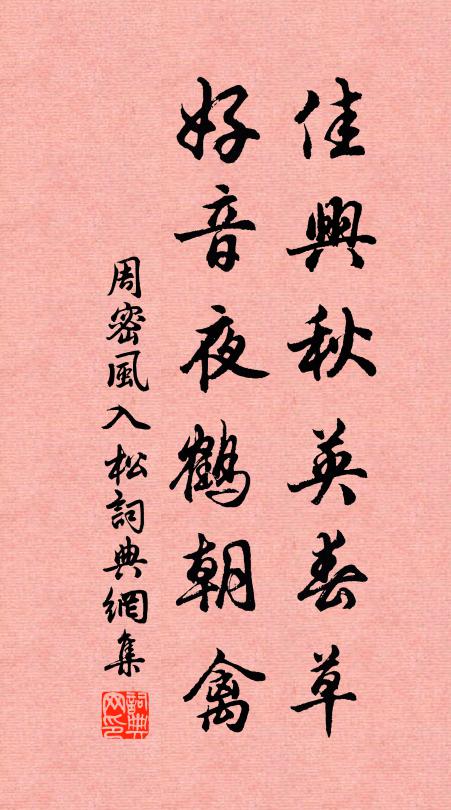 佳興秋英春草
好音夜鶴朝禽
周密風入松詞典網集
詞典网印